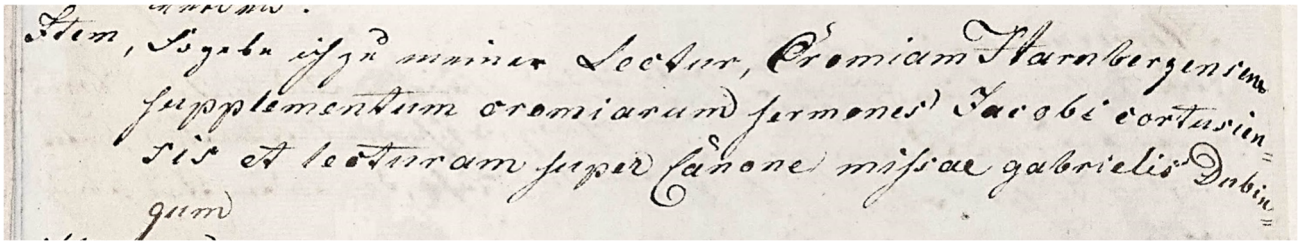 Item, So gebe ich zu meiner Lectur, Cremiam Starnbergensem
supplementum cremiarum sermones Jacobi cortusien=
sis et lecturam super Canone missae gabrielis Dubin=
gum